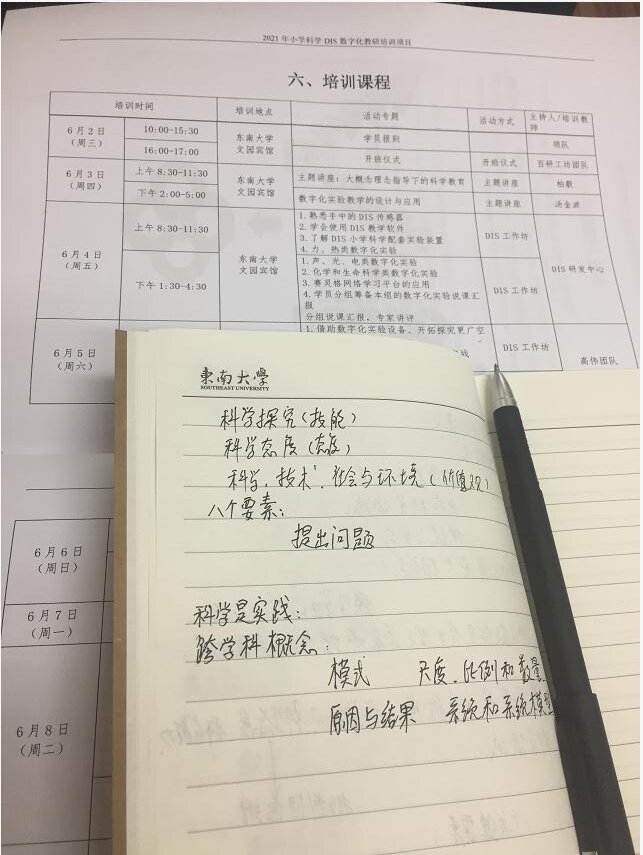 2021年小学科学DIS数字化教研培训项目
六、培训课程
培训时间 培训地点 活动专题 活动方式 主持人/培训教师
6月2日（周三） 10:00-15:30 东南大学文园宾馆 学员报到 领队
16:00-17:00 开班仪式 开班仪式 百研工坊团队
6月3日（周四） 上午 8:30-11:30 东南大学文园宾馆 主题讲座：大概念理念指导下的科学教育 主题讲座 柏毅
下午 2:00-5:00 数字化实验教学的设计与应用 主题讲座
6月4日（周五） 上午 8:30-11:30 东南大学文园宾馆 1.熟悉手中的DIS传感器 DIS工作坊 DIS研发中心
2.学会使用DIS教学软件
3.了解DIS小学科学配套实验装置
4.力、热类数字化实验
下午 1:30-4:30 1.声、光、电类数字化实验 DIS工作坊
2.化学和生命科学类数字化实验
3.赛灵格网络学习平台的应用
4.学员分组筹备本组的数字化实验说课汇报
分组说课汇报，专家讲评
6月5日（周六） 1.借助数字化实验设备，开拓探究更广空 DIS工作坊 高伟团队
東南大學
SOUTHEAST UNIVERSITY
科学探究（技能）
科学态度（态度）
科学、技术、社会与环境（价值观）
八个要素：
提出问题
科学是实践：
跨学科概念：
模式 尺度、比例和数量
原因与结果 系统和系统模型
6月6日（周日）
6月7日（周一）
6月8日（周二）